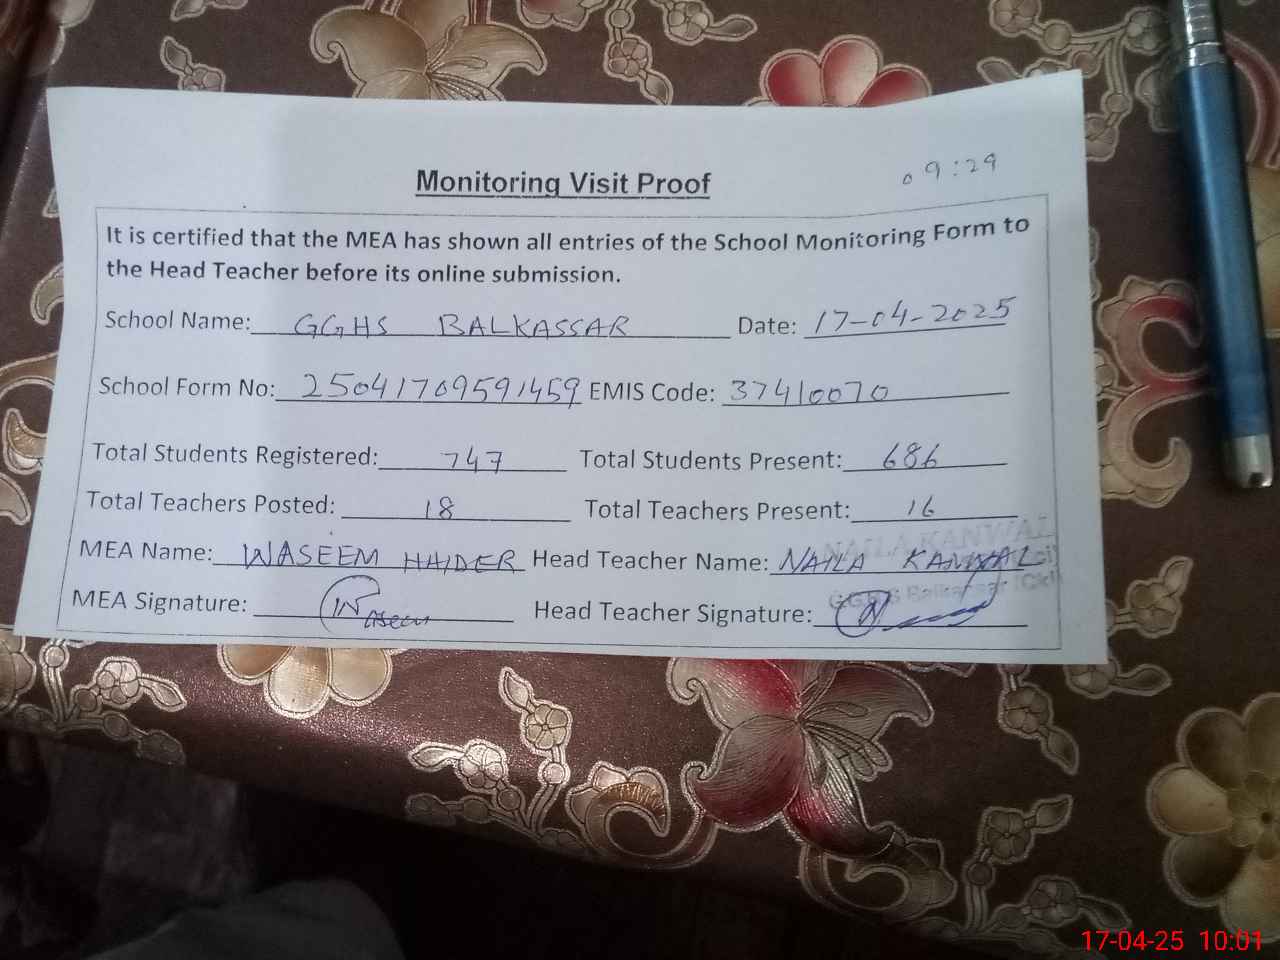 Monitoring Visit Proof
09:29
It is certified that the MEA has shown all entries of the School Monitoring Form to
the Head Teacher before its online submission.
School Name: GGHS BALKASSAR Date: 17-04-2025
School Form No: 25041709591459 EMIS Code: 37410070
Total Students Registered: 747 Total Students Present: 686
Total Teachers Posted: 18 Total Teachers Present: 16
NAILA KANWAL
MEA Name: WASEEM HAIDER Head Teacher Name: NAILA KANWAL
MEA Signature: Waseem Head Teacher Signature:
17-04-25 10:01